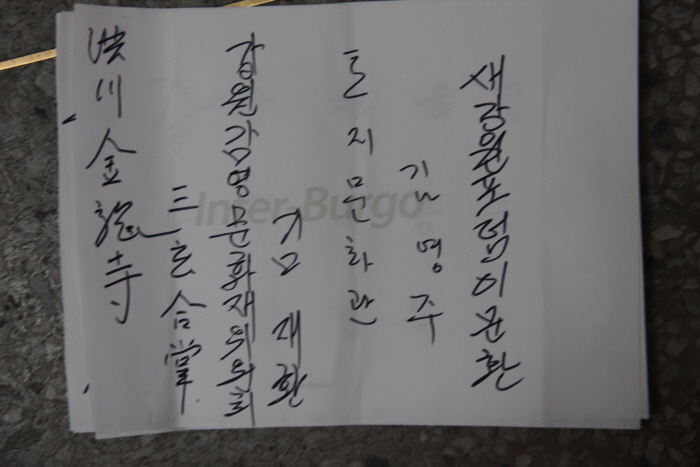 洪川金龍寺
三 合掌
강원감영문화재위원회
김재환
토지문화관
김명주
새강원포럼 이문환
Inter-Burgo